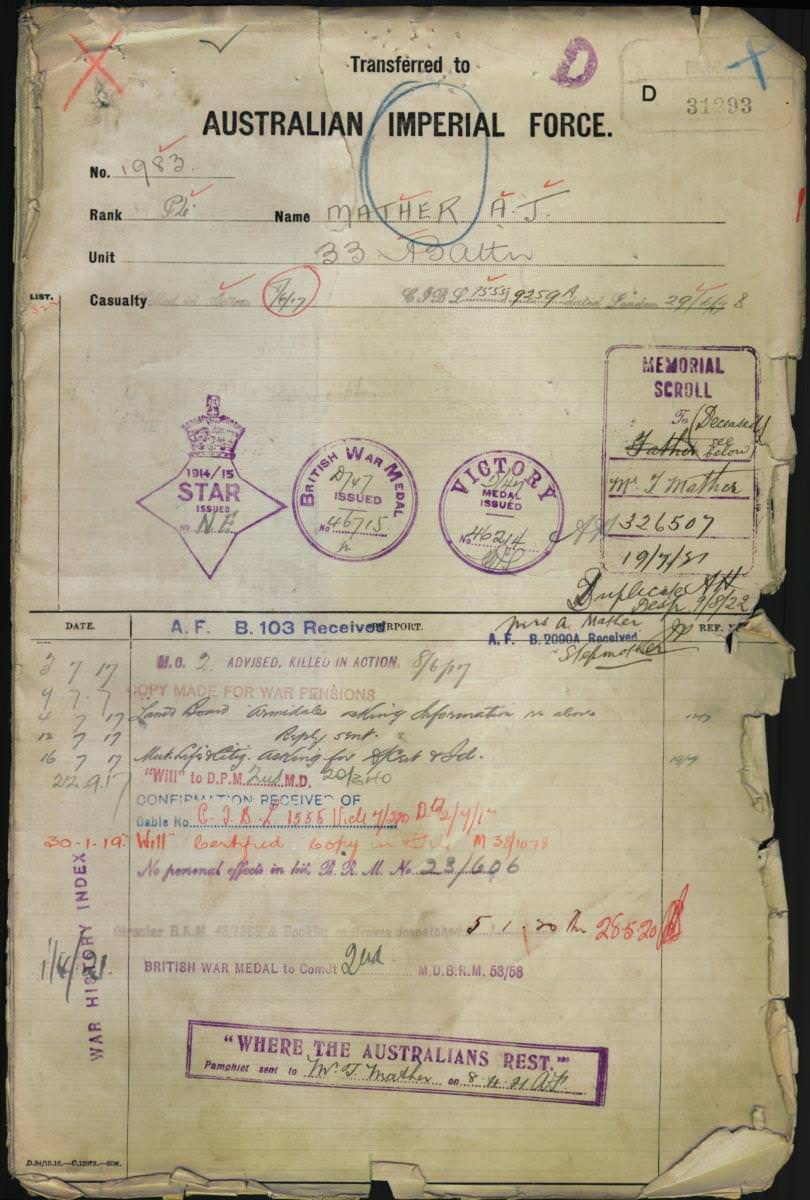 Transferred to
D
D
31293
AUSTRALIAN IMPERIAL FORCE.
No. 1983.
Rank Pte Name MATHER A.J.
Unit 33 Battn
LIST.
Casualty Killed in Action 8/6/17 C.I.B.L 1555 9259A dated London 29/6/17 8
MEMORIAL
SCROLL
To (Deceased
Father see
below)
Mr. T Mather
326507
19/7/21
Duplicate AH
Desp. 9/8/22
Mrs A. Mather
Stepmother
1914/15
STAR
ISSUED
No N.E
BRITISH WAR MEDAL
D/47
ISSUED
No 46715
VICTORY
D/47
MEDAL
ISSUED
No 46214
DATE. REPORT. REF. No
A. F. B. 103 Received
A. F. B. 2090A Received
3 7 17 M.C. 2 ADVISED, KILLED IN ACTION. 8/6/17
9 7 7 COPY MADE FOR WAR PENSIONS
4 7 17 Land Board Armidale asking information re above
12 7 17 Reply sent.
16 7 17 Mut. Life & City. asking for D/Cert & Id.
22.9.17 "Will" to D.P.M. 2nd M.D. 20/340
CONFIRMATION RECEIVED OF
Cable No. C.I.B.L 1555 Vide 7/220 Dd 2/7/17
30-1-19. "Will" Certified Copy in M 38/1078
No personal effects in hd. B. R. M. No 23/606
Circular B.R.M. & Booklet Graves despatched 5 1 20 28.5.20
1/4/21. BRITISH WAR MEDAL to Comdt 2nd M.D.B.R.M. 53/58
WAR HISTORY INDEX
"WHERE THE AUSTRALIANS REST."
Pamphlet sent to Mr. T. Mather on 8.4.21 A.F.